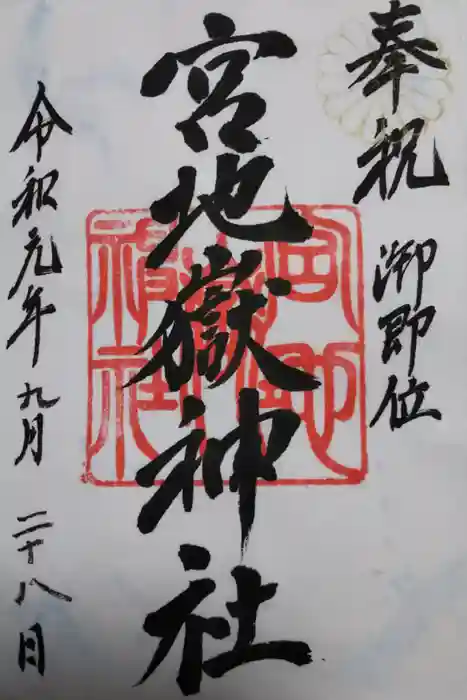 奉祝
御即位
宮地嶽神社
令和元年九月二十八日